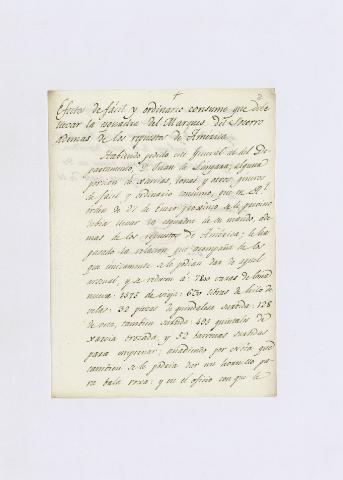 2
Efectos de fácil y ordinario consumo que debe
llevar la esquadra del Marques del Socorro
ademas de los repuestos de América.
Habiendo pedido un General del De-
partamento, D. Juan de Lángara, alguna
porcion de xarcias, lonas y otros géneros
de fácil y ordinario consumo, que en Rl.
orden de 27 de Enero proximo se le previno
debia llevar la esquadra de su mando, ade-
mas de los repuestos de América; le ha
pasado la relacion que acompaña de los
que unicamente se le podian dar de aquel
arsenal, y se reducen á 7800 varas de lona
nueva: 1575 de vieja: 650 libras de hilo de
velas: 32 piezas de guindalesa surtida: 128
de veta, tambien surtida: 400 quintales de
xarcia trozada, y 52 betunes surtidas
para; añadiendo por extra que
tambien se le podria dar un pa-
ra bala roxa: y en el oficio con que le